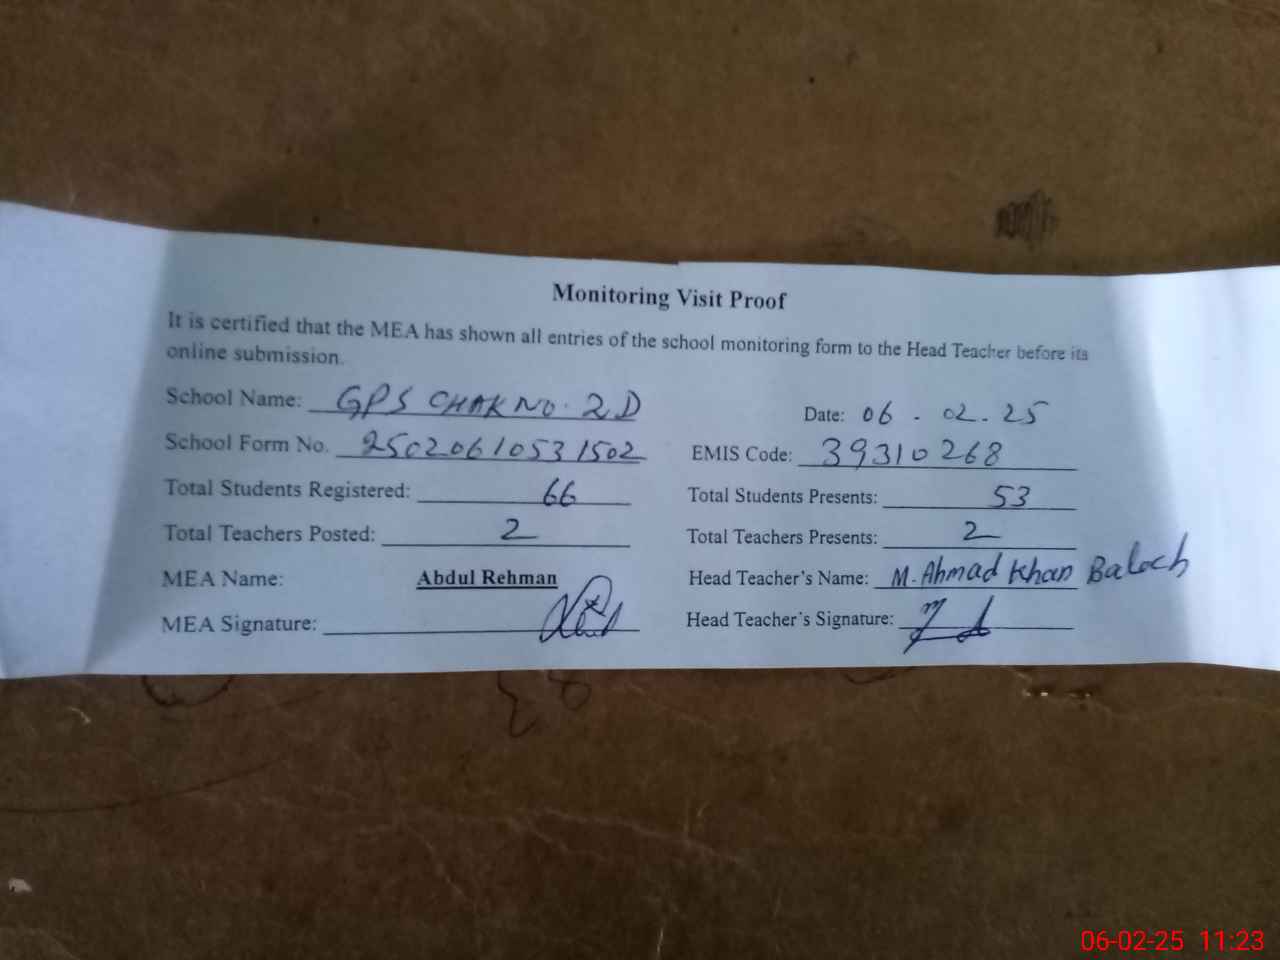 Monitoring Visit Proof
It is certified that the MEA has shown all entries of the school monitoring form to the Head Teacher before its
online submission.
School Name: GPS CHAK NO. 2D Date: 06 - 02 - 25
School Form No. 25020610531502 EMIS Code: 39310268
Total Students Registered: 66 Total Students Presents: 53
Total Teachers Posted: 2 Total Teachers Presents: 2
MEA Name: Abdul Rehman Head Teacher's Name: M. Ahmad Khan Baloch
MEA Signature: Head Teacher's Signature:
06-02-25 11:23